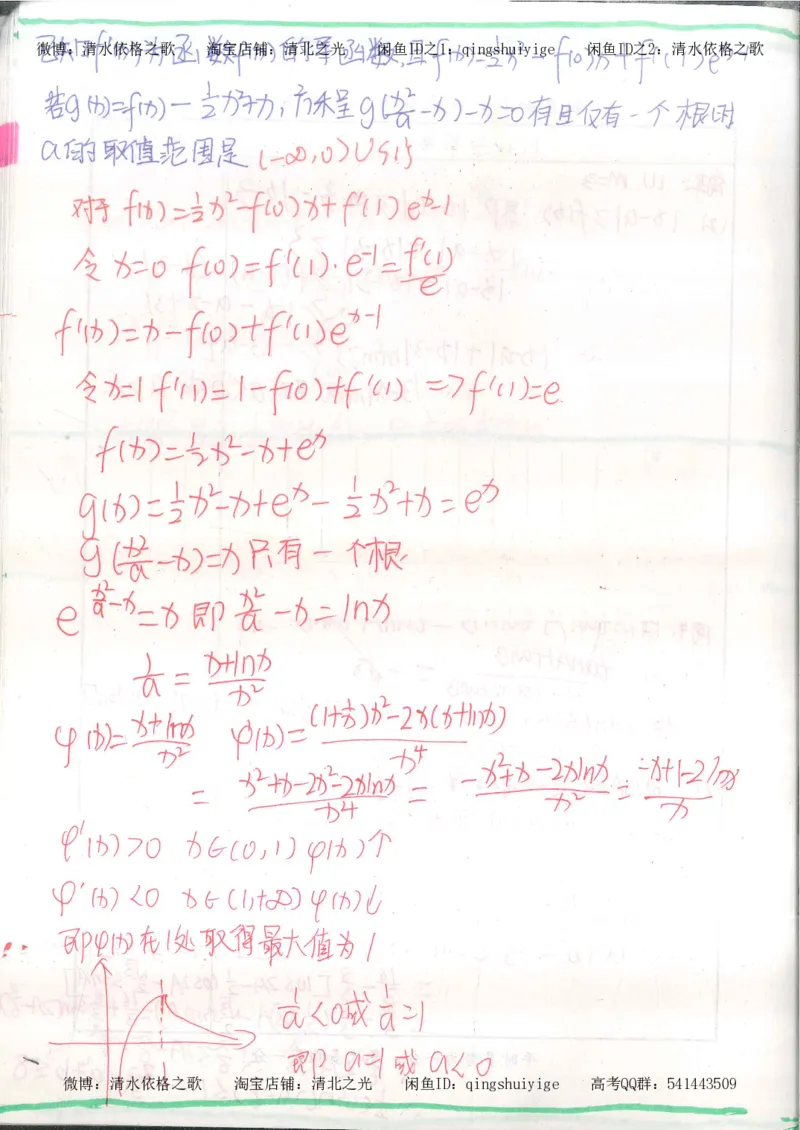 微博：清水依格之歌 淘宝店铺：清北之光 闲鱼ID之1：qingshuiyige 闲鱼ID之2：清水依格之歌
若g(x)=f(x)-½x²+x，方程g(x²/a-x)-x=0有且仅有一个根时
a的取值范围是 (-∞,0)∪{1}
对于 f(x)=½x²-f(0)x+f'(1)e^(x-1)
令x=0 f(0)=f'(1)·e⁻¹=f'(1)/e
f'(x)=x-f(0)+f'(1)e^(x-1)
令x=1 f'(1)=1-f(0)+f'(1) =>f'(1)=e.
f(x)=½x²-x+e^x
g(x)=½x²-x+e^x-½x²+x=e^x
g(x²/a-x)=x只有一个根
e^(x²/a-x)=x 即 x²/a-x=lnx
1/a=(x+lnx)/x²
φ(x)=(x+lnx)/x² φ'(x)=((1+1/x)x²-2x(x+lnx))/x⁴
=(x²+x-2x²-2xlnx)/x⁴=(-x²+x-2xlnx)/x²=(-x+1-2lnx)/x
φ'(x)>0 x∈(0,1) φ(x)↑
φ'(x)<0 x∈(1,+∞) φ(x)↓
即φ(x)在1处取得最大值为1
1/a<0或1/a=1
即a=1或a<0
1
微博：清水依格之歌 淘宝店铺：清北之光 闲鱼ID：qingshuiyige 高考QQ群：541443509